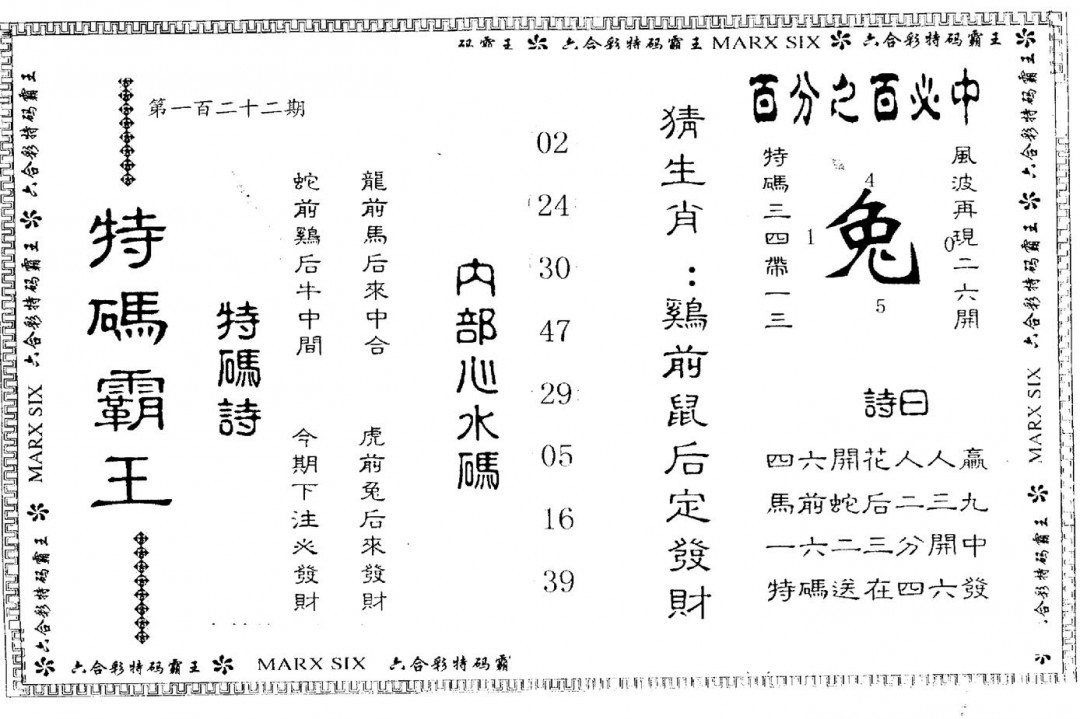 砚霸王 六合彩特码霸王 MARX SIX 六合彩特码霸王
百分之百必中
風波再現二六開
兔
4
1
0
5
特碼三四帶一三
詩曰
四六開花人人贏
馬前蛇后二三九
一六二三分開中
特碼送在四六發
猜生肖：鷄前鼠后定發財
02
24
30
47
29
05
16
39
内部心水碼
龍前馬后來中合
虎前兔后來發財
蛇前鷄后牛中間
今期下注必發財
特碼詩
第一百二十二期
特碼霸王
六合彩特码霸王
六合彩特码霸王
MARX SIX
六合彩特码霸王
六合彩特码霸王
六合彩特码霸王
MARX SIX
合彩特码霸王
六合彩特码霸王 MARX SIX 六合彩特码霸